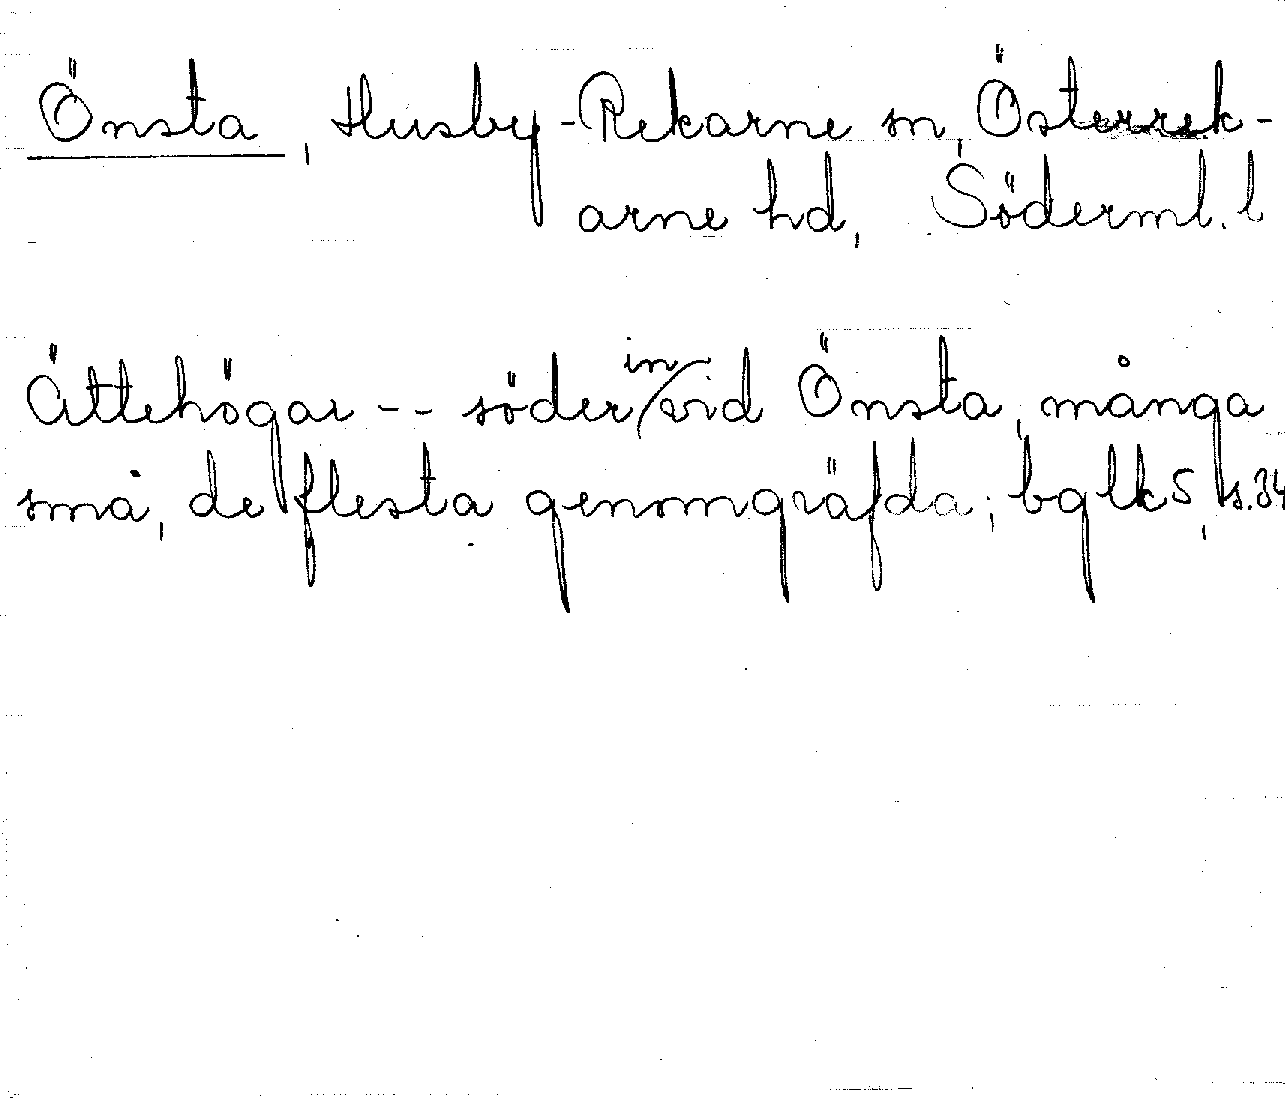 Önsta, Husby-Rekarne sn, Österrek-
arne hd, Söderml. l
Ättehögar -- söder in/vid Önsta, många
små, de flesta genomgräfda; bglk 5, s. 34